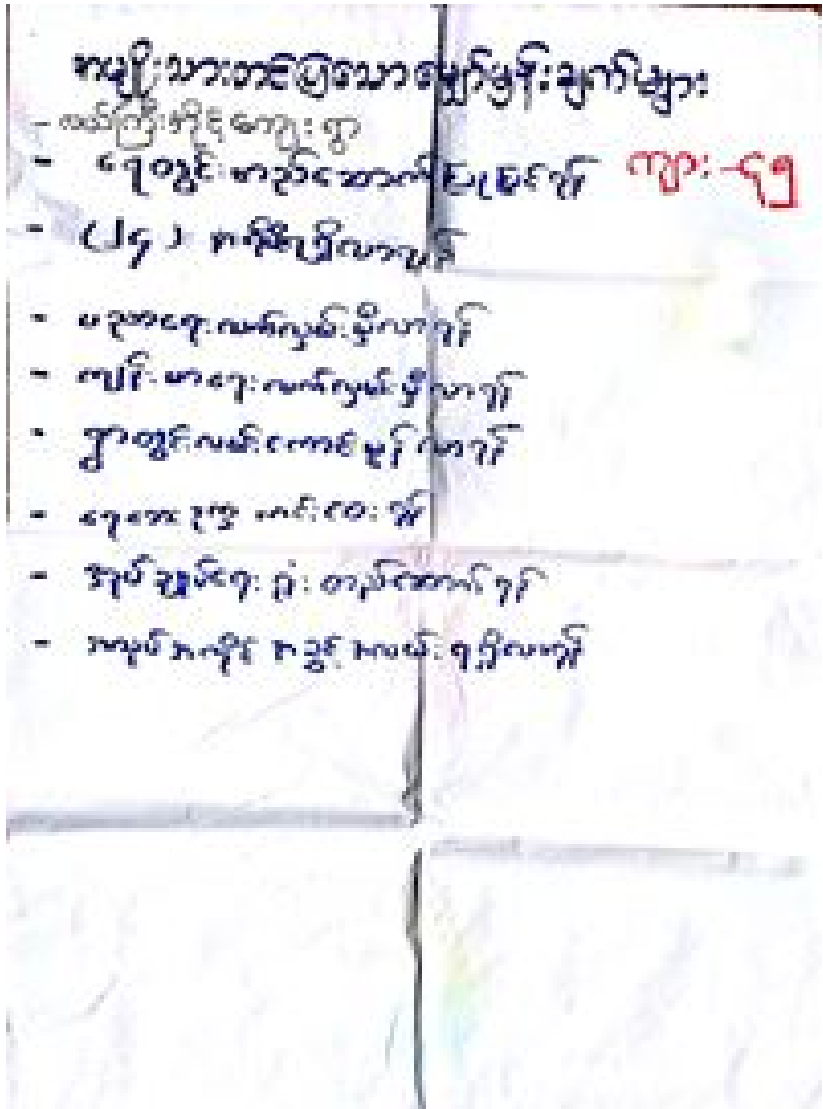 အမျိုးသားတင်ပြသောမျှော်မှန်းချက်များ
- လယ်ကြီးကိုင်ကျေးရွာ
- ရေတွင်းတည်ဆောက်ပြုပြင်ရန် ကျား - ၄၅
- (၂၄) နာရီမီးရရှိလာရန်
- ပညာရေးလက်လှမ်းမှီလာရန်
- ကျန်းမာရေးလက်လှမ်းမှီလာရန်
- ရွာတွင်းလမ်းကောင်းမွန်လာရန်
- ရေဘေးဒုက္ခကင်းဝေးရန်
- အုပ်ချုပ်ရေးရုံးတည်ဆောက်ရန်
- အလုပ်အကိုင်အခွင့်အလမ်းရရှိလာရန်